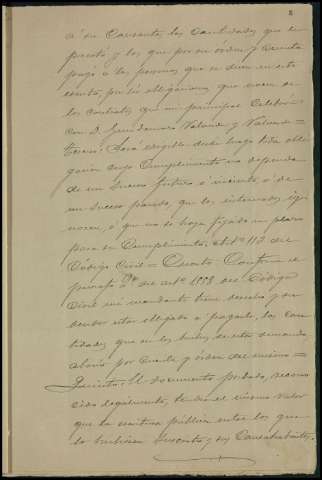 8
á su Causante las cantidades que le
prestó y las que por su orden y cuenta
pagó a las personas que se dicen en este
escrito, por las obligaciones que nacen de
los contratos que mi principal celebró
con D. Guadencio Valando y Valver=
Tercero: Será exigible desde luego toda obli
gación cuyo cumplimiento no dependa
de un suceso futuro ó incierto, ó de
un suceso pasado, que los interesados igno
noren, ó que no se haya fijado un plazo
para su cumplimiento, artº 113 del
Código Civil = Cuarto: Conforme el
párrafo 2º del artº 1158 del Código
Civil mi mandante tiene derecho y su
deudor está obligado á pagarle, las can
tidades que en los hechos de esta demanda
abonó por cuenta y orden del mismo =
Quinto: El documento privado, recono
cido legalmente, tendrá el mismo valor
que la escritura pública entre los que
lo hubiesen suscrito y sus Causahabientes,